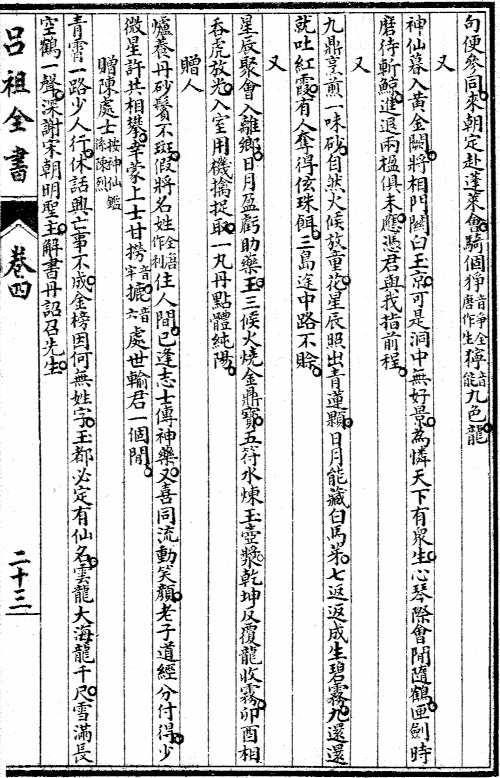 句便參同來朝定赴蓬萊會騎個猙音爭全唐作生獰音能九色龍
又
神仙暮入黃金闕將相門關白玉京可是洞中無好景為憐天下有眾生心琴際會閒隨鶴匣劍時
磨待斬鯨進退兩楹俱未應憑君與我指前程
又
九鼎烹煎一味砂自然火候放童花星辰照出青蓮顆日月能藏白馬芽七返返成生碧霧九還還
就吐紅霞有人奪得玄珠餌三島途中路不賒
又
星辰聚會入離鄉日月盈虧助藥王三候火燒金鼎寶五符水煉玉壺漿乾坤反覆龍收霧卯酉相
吞虎放光入室用機擒捉取一丸丹點體純陽
贈人
爐養丹砂鬢不斑假將名姓全唐作利住人間已逢志士傳神藥又喜同流動笑顏老子道經分付得少
微星許共相攀幸蒙上士甘撈音牢摝音六處世輸君一個閒
贈陳處士按神仙鑑陳烈
青霄一路少人行休話興亡事不成金榜因何無姓字玉都必定有仙名雲龍大海龍千尺雪滿長
空鶴一聲深謝宋朝明聖主解書丹詔召先生
呂祖全書
卷四
二十三